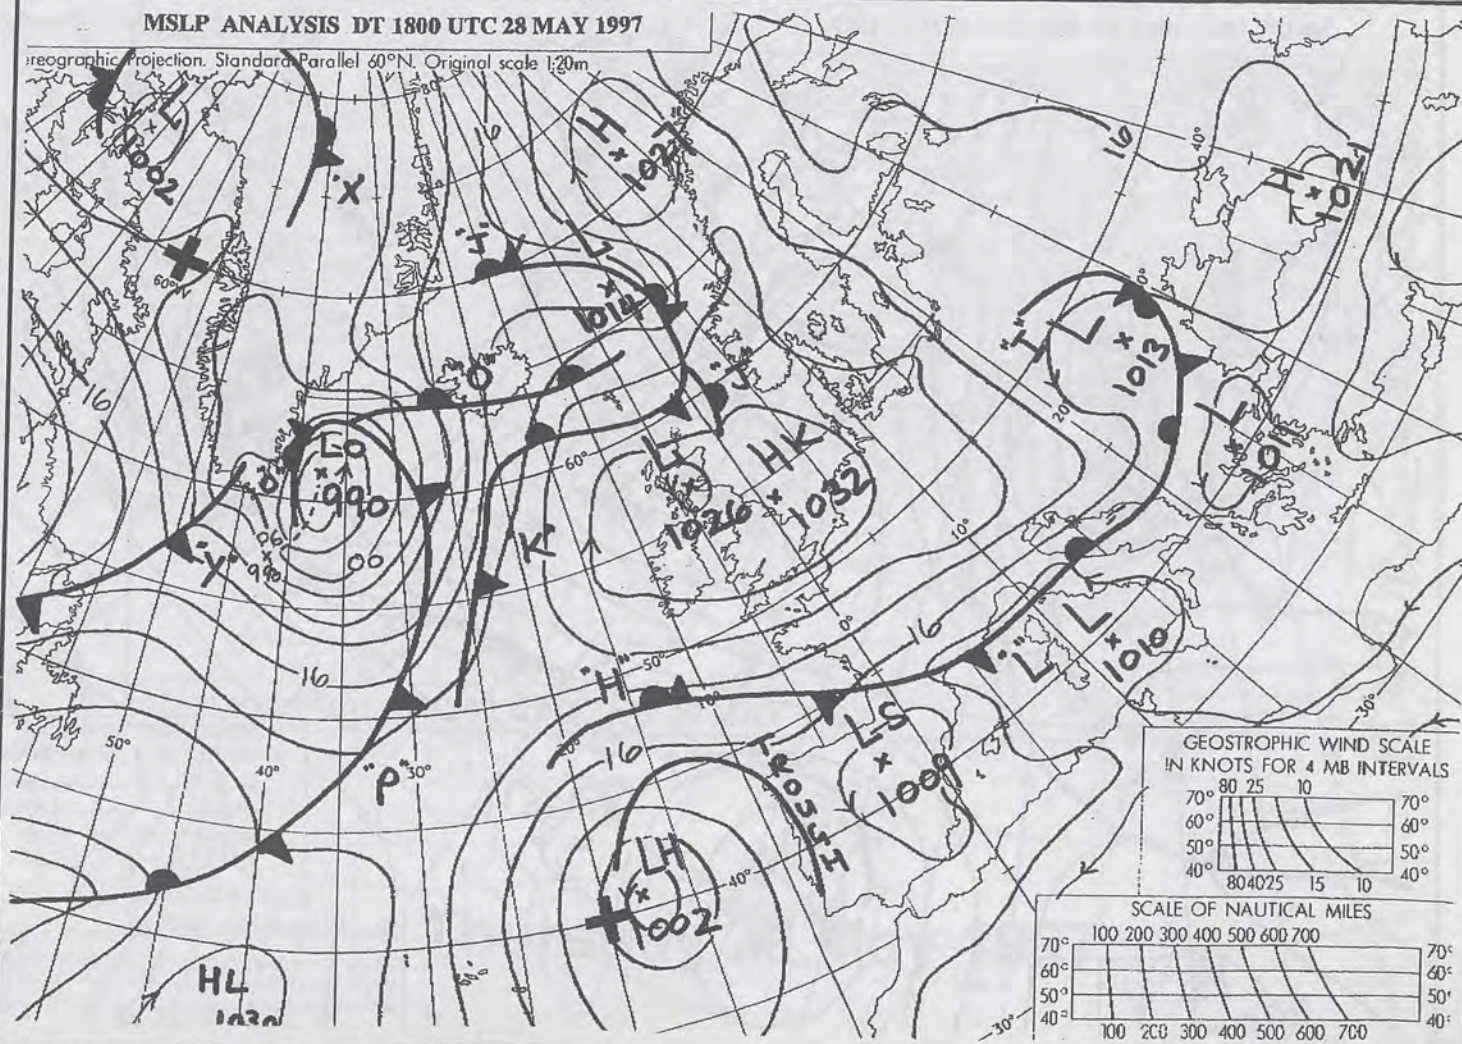 MSLP ANALYSIS DT 1800 UTC 28 MAY 1997
ereographic Projection. Standard Parallel 60°N. Original scale 1:20m
80°
L
1002
"X"
16
H
1027
16
40°
H
1021
60°N
"I"
L
1014
0°
"I"
L
1013
20°
"O"
"J"
16
LO
990
"O"
60°
L
1026
HK
1032
L
"Y"
990
00
"K"
10°
0°
16
L
1010
"L"
16
"H"
50°
10°
20°
16
LS
1009
TROUGH
30°
50°
40°
"P"
30°
LH
1002
40°
HL
1030
30°
GEOSTROPHIC WIND SCALE
IN KNOTS FOR 4 MB INTERVALS
80 25 10
70° 70°
60° 60°
50° 50°
40° 40°
80 40 25 15 10
SCALE OF NAUTICAL MILES
100 200 300 400 500 600 700
70° 70°
60° 60°
50° 50°
40° 40°
100 200 300 400 500 600 700